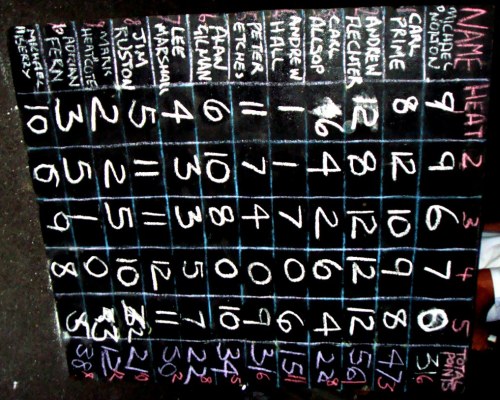 NAME HEAT 2 3 4 5 TOTAL POINTS
MICHAEL NORTON 9 9 6 7 0 31 6
CARL PRIME 8 12 10 9 8 47 3
ANDREW 12 8 12 12 12 56 1
CARL ALLSOP 6 4 2 6 4 22 8
ANDREW HALL 1 1 7 0 6 15 11
PETER ETCHES 11 7 4 0 9 31 6
ALAN GILMAN 6 10 8 0 10 34 5
LEE MARSHALL 4 3 3 5 7 22 8
JIM RUSTON 5 11 11 12 11 50 2
MARK HEATHCOTE 2 2 5 10 2 21 10
ADRIAN FERN 3 5 1 0 3 12
MICHAEL 10 6 9 8 5 38